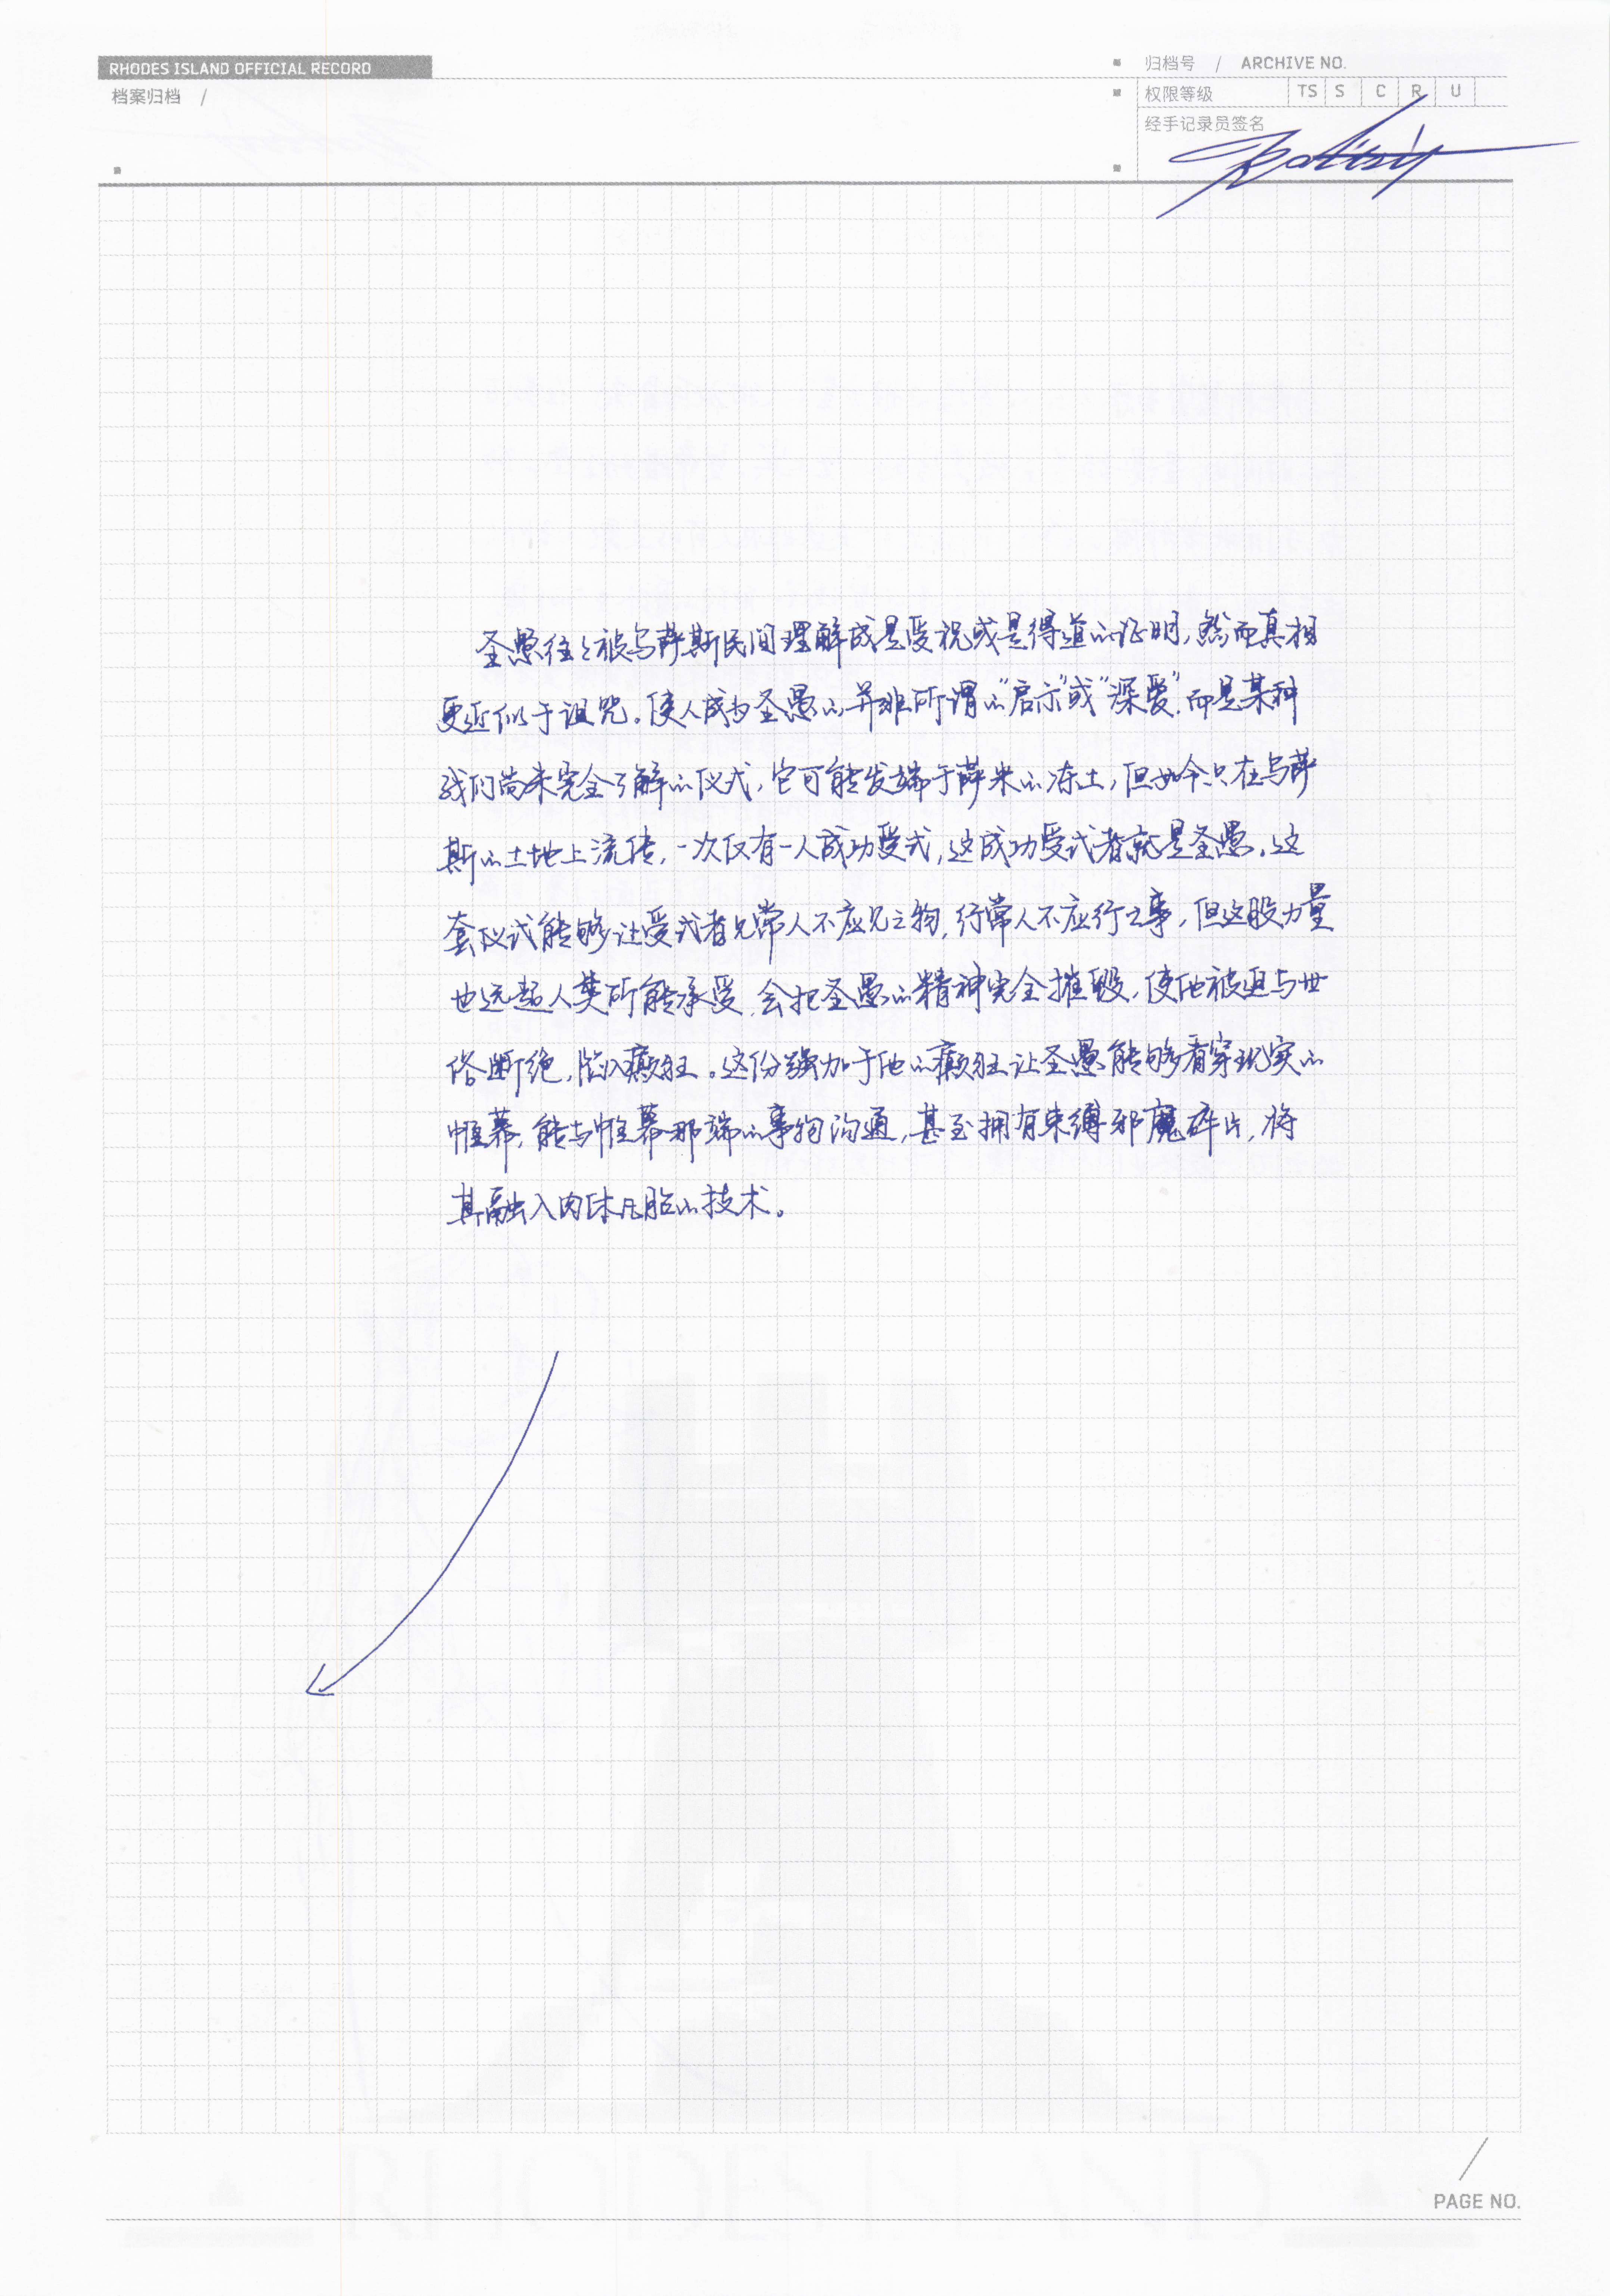 RHODES ISLAND OFFICIAL RECORD
档案归档 /
归档号 / ARCHIVE NO.
权限等级 TS S C R U
经手记录员签名
圣愚往往被乌萨斯民间理解成是受祝或是得道的证明,然而真相
更近似于诅咒。使人成为圣愚的并非所谓的“启示”或“深爱”,而是某种
我们尚未完全了解的仪式,它可能发端于萨米的冻土,但如今只在乌萨
斯的土地上流传,一次仅有一人成功受式,这成功受式者就是圣愚。这
套仪式能够让受式者见常人不应见之物,行常人不应行之事,但这股力量
也远超人类所能承受,会把圣愚的精神完全摧毁,使他被迫与世
俗断绝,陷入癫狂。这份强加于他的癫狂让圣愚能够看穿现实的
帷幕,能与帷幕那端的事物沟通,甚至拥有束缚邪魔碎片,将
其融入肉体凡胎的技术。
RHODES ISLAND
PAGE NO.